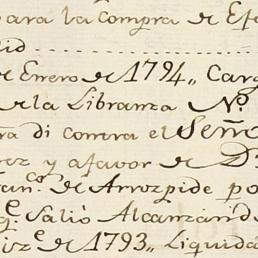 para la compra de Efe
id
de Enero de 1794,, Carg
de la Libranza N.º
ra di contra el Seño
rez y afavor de D.
ran.co de Arrozpide po
q.e Salió Alcanzand
Diz.e de 1793,, Liquida